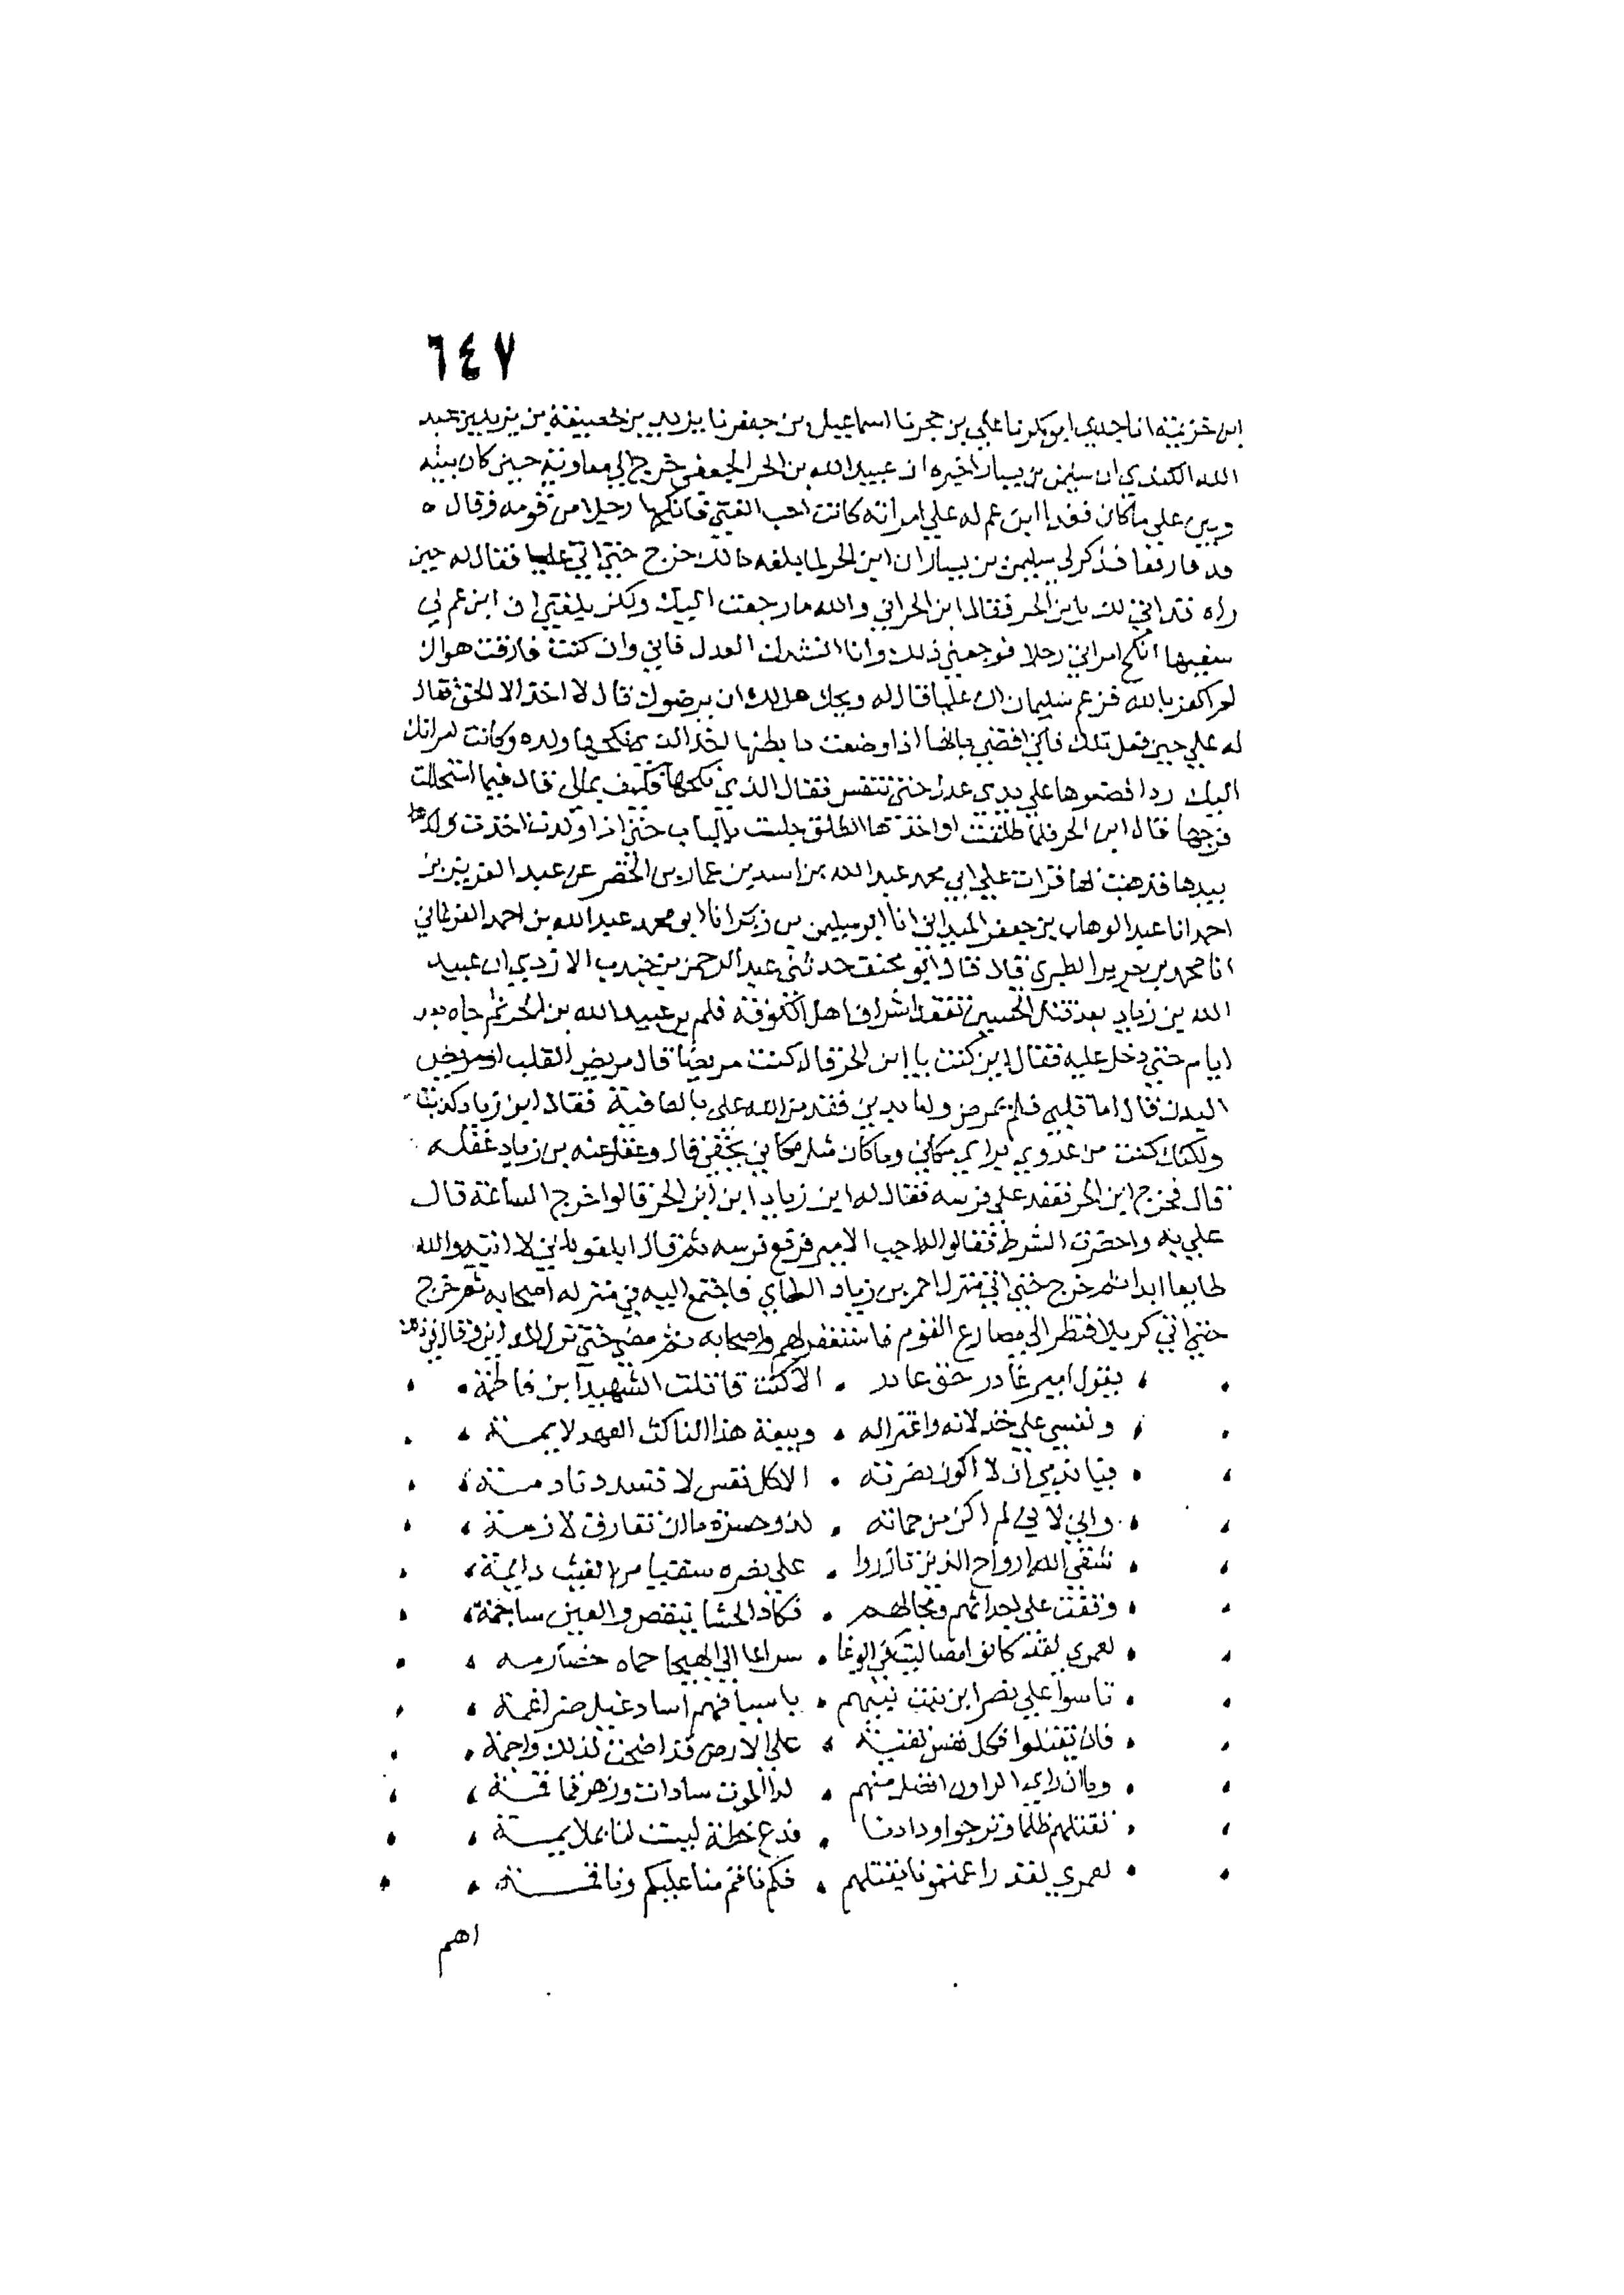 ٦٤٧
ابن خزيمة انا جدي ابو بكر نا علي بن حجر نا اسماعيل بن جعفر نا يزيد بن خصيفة بن يزيد بن عبد
الله الكندي ان سليمن بن يسار اخبره ان عبيد الله بن الحر الجعفي خرج الي معاوية حين كان بينه
وبين علي ما كان فغدا ابن عم له علي امراته كانت احب الفتي فانكحها رجلا من قومه وقال ه
قد فارقها فذكر لي سليمن بن يسار ان ابن الحر لما بلغه ذلك خرج حتي اتي عليا فقال له حين
راه قد اتي لك يا بن الحر فقال ابن الحر اني والله ما رجعت اليك ولكن بلغني ان ابن عم لي
سفيها انكح امراتي رجلا فوجعني ذلك وانا انشدك العدل فاني وان كنت فارقت هواك
لم اكفر بالله فزعم سليمان ان عليا قال له ويحك هل لك ان يرضوك قال لا اخذ الا الحق فقال
له علي حين فعل تلك فاني اقضي بانها اذا وضعت ما بطنها لهذا الذي نكحها ولده وكانت امراتك
اليك ردا فضعوها علي يدي عدل حتي تنفس فقال الذي نكحها فكيف بمالي قال فيما استحللت
فرجها قال ابن الحر فلما طلقت او اخذها الطلق جلست بالباب حتي اذا ولدت اخذت
بيدها فذهبت بها قرات علي ابي محمد عبد الله بن اسد بن عمار بن الخضر عن عبد العزيز بن
احمد انا عبد الوهاب بن جعفر الميداني انا ابو سليمن بن زبر انا ابو محمد عبد الله بن احمد الفرغاني
انا محمد بن جرير الطبري قال قال ابو مخنف حدثني عبد الرحمن بن جندب الازدي ان عبيد
الله بن زياد بعد قتل الحسين تفقد اشراف اهل الكوفة فلم ير عبيد الله بن الحر ثم جاه بعد
ايام حتي دخل عليه فقال اين كنت يا ابن الحر قال كنت مريضا قال مريض القلب او مريض
البدن قال اما قلبي فلم يمرض واما بدني فقد من الله علي بالعافية فقال ابن زياد كذبت
ولكنك كنت من عدوي يراي مكاني وما كان مثل مكاني يخفي قال وغفل عنه بن زياد غفله
قال فخرج ابن الحر فقعد علي فرسه فقال له ابن زياد اين ابن الحر قالوا خرج الساعة قال
علي به واحضرت الشرط فقالوا له اجب الامير فرفع فرسه ثم قال ابلغوه اني لا اتيه والله
طايعا ابدا ثم خرج حتي اتي منزل احمر بن زياد الطاي فاجتمع اليه في منزله اصحابه ثم خرج
حتي اتي كربلا فنظر الي مصارع القوم فاستغفر لهم واصحابه ثم مضي حتي نزل المداين وقال في ذلك
يقول امير غادر حق غادر ، الا كنت قاتلت الشهيد ابن فاطمة
ونفسي علي خذلانه واعتزاله ، وبيعة هذا الناكث العهد لايمــة
فيا ندمي ان لا اكون نصرته ، الا كل نفس لا تسدد نادمــة
واني لاني لم اكن من حماته ، لذو حسرة ما ان تفارق لازمــة
سقي الله ارواح الذين تازروا ، علي نصره سقيا من الغيث دايمة
وقفت علي اجداثهم ومجالهــم ، فكاد الحشا ينقض والعين ساجمة
لعمري لقد كانوا مصاليت في الوغا ، سراعا الي الهيجا حماه خضارمــه
تاسوا علي نصر ابن بنت نبيهم ، باسيافهم اساد غيل ضراغمة
فان تقتلوا فكل نفس تقيــة ، علي الارض قد اضحت لذلك واجمة
وما ان راي الراون افضل منهم ، لدا الموت سادات وزهر قماقمــة
تقتلهم ظلما وترجوا ودادنا ، فدع خطة ليست لنا بملايمــة
لعمري لقد راغمتمونا بقتلهم ، فكم ناقم منا عليكم وناقمــــة
اهم